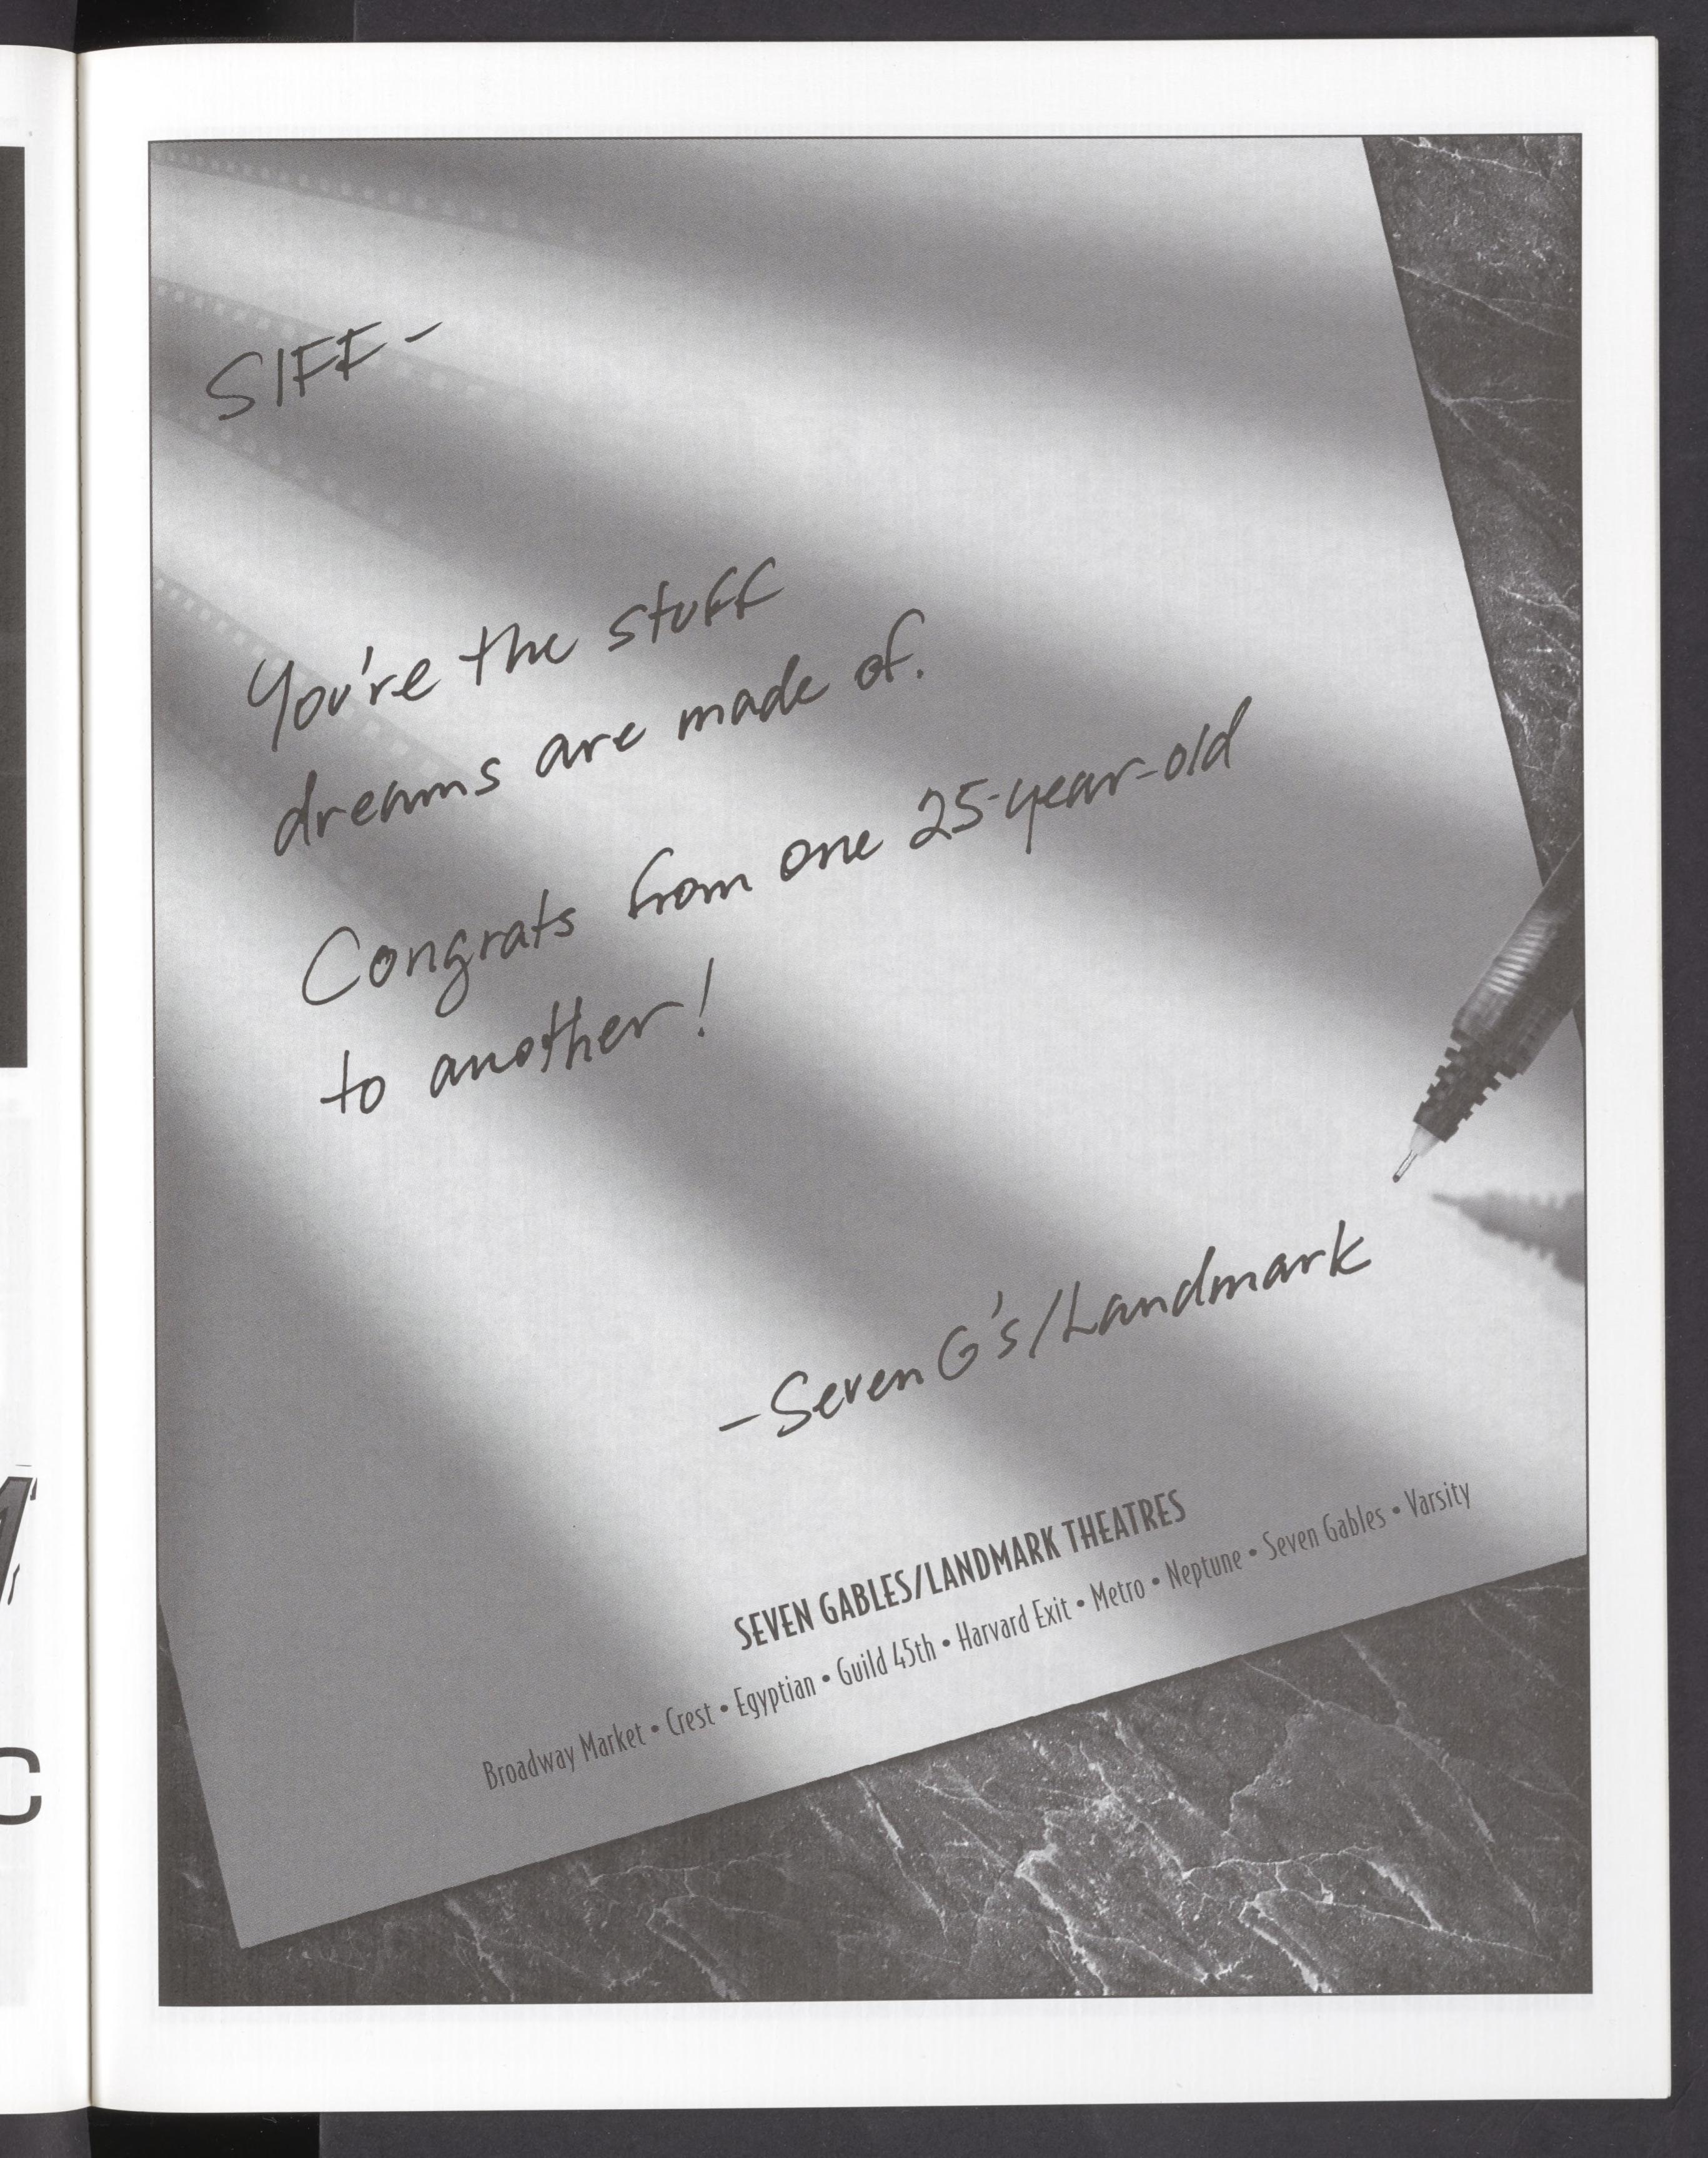 SIFF –
You're the stuff
dreams are made of.
Congrats from one 25-year-old
to another!
– Seven G's/Landmark
SEVEN GABLES/LANDMARK THEATRES
Broadway Market • Crest • Egyptian • Guild 45th • Harvard Exit • Metro • Neptune • Seven Gables • Varsity